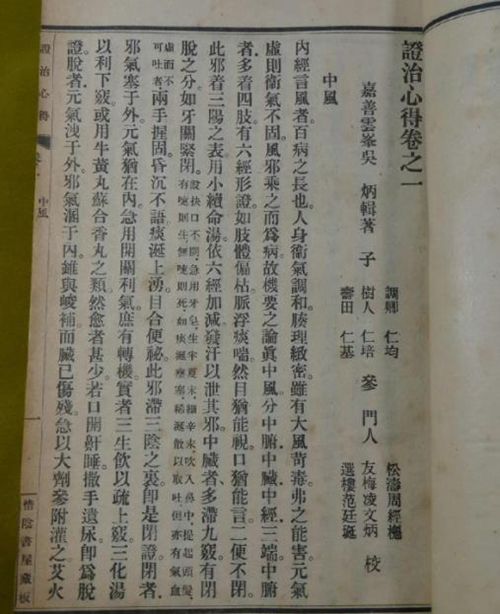 證治心得卷之一
嘉善雲峯吳 炳輯著 子 調卿 仁均 樹人 仁培 壽田 仁基 參 門人 松濤周經 友梅凌文炳 選樓范廷 校
中風
內經言風者百病之長也人身衛氣調和腠理緻密雖有大風苛毒弗之能害元氣
虛則衛氣不固風邪乘之而爲病故機要之論眞中風分中腑中臟中經三端中腑
者多着四肢有六經形證如肢體偏枯脈浮痰喘然目猶能視口猶能言二便不閉
此邪着三陽之表用小續命湯依六經加減發汗以泄其邪中臟者多滯九竅有閉
脫之分如牙關緊閉設抉口不開急用牙皂生半夏末細辛末吹入鼻中提起頭髮有嚏則生無嚏則死如痰涎壅塞稀涎散以取吐但亦有氣血
虛而不可吐者兩手握固昏沉不語痰涎上湧目合便祕此邪滯三陰之裏卽是閉證閉者
邪氣塞于外元氣猶在內急用開關利氣庶有轉機實者三生飲以疏上竅三化湯
以利下竅或用牛黃丸蘇合香丸之類然愈者甚少若口開鼾睡撒手遺尿卽爲脫
證脫者元氣洩于外邪氣涸于內雖與峻補而臟已傷殘急以大劑參附灌之艾火
證治心得
中風
一
惜陰書屋藏板